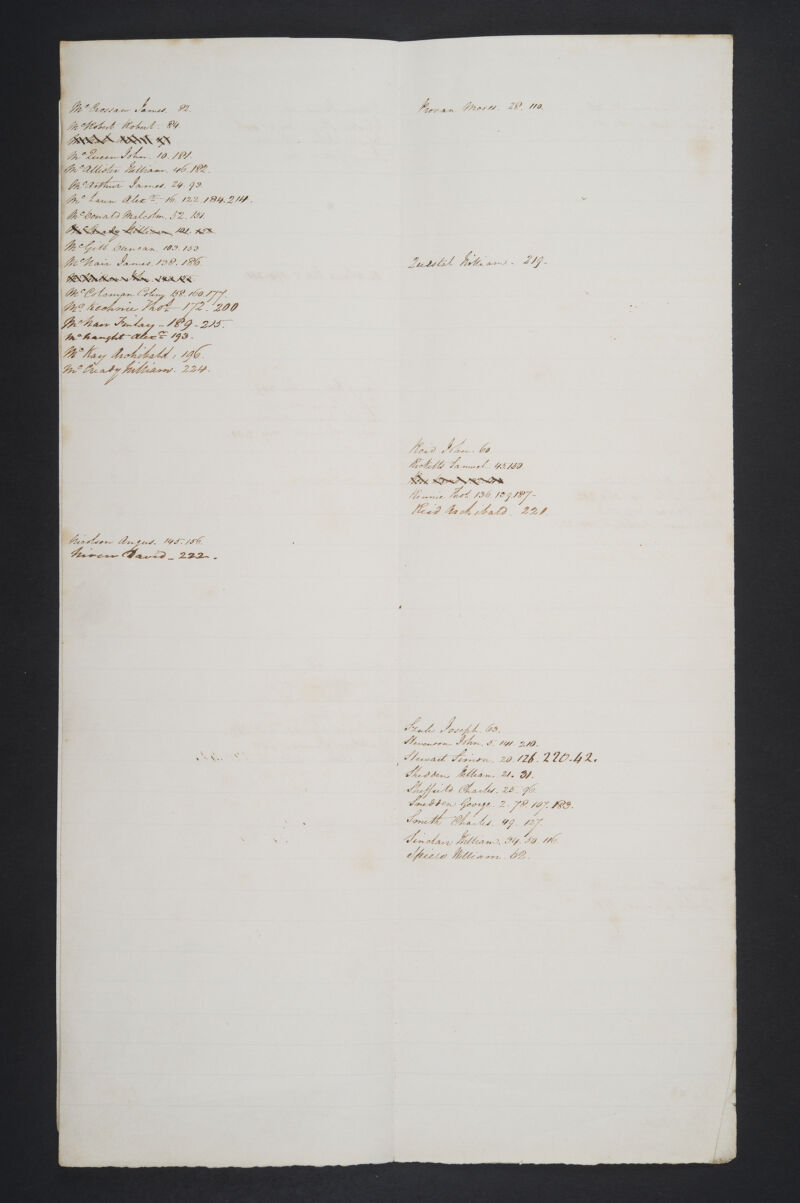 McCrossan James. 82
McRobert Robert. 84
McQueen John. 10. 181.
McAllister William. 46. 182.
McArthur James. 24. 93.
McLaren Alexr. 16. 122. 184. 214.
McDonald Malcolm. 52. 131.
McGill Duncan. 103. 153
McNair James. 138. 186
McColeman Coling 58. 160. 177.
McKechnie Thos. 172. 200
McNair Finlay - 189 - 215.
McNaught Alexr. 193.
McKay Archibald, 196.
McCready William. 224.
Nicolson Angus. 145. 156.
Niven David - 222.
Provan Moses. 28. 110.
William. 219.
Reid John. 60
Ricketts Samuel. 45. 150
Rennie Thos. 136. 139. 187.
Reid Archibald. 221.
Joseph. 63.
Stevenson John. 5. 141. 210.
Stewart Simon. 20. 126. 220. 42.
Shedden William. 21. 31.
Sheffield Charles. 25. 96.
Snedden George. 2. 78. 107. 183.
Smith Charles. 49. 127.
Sinclair William. 34. 50. 116.
Spiers William. 62.